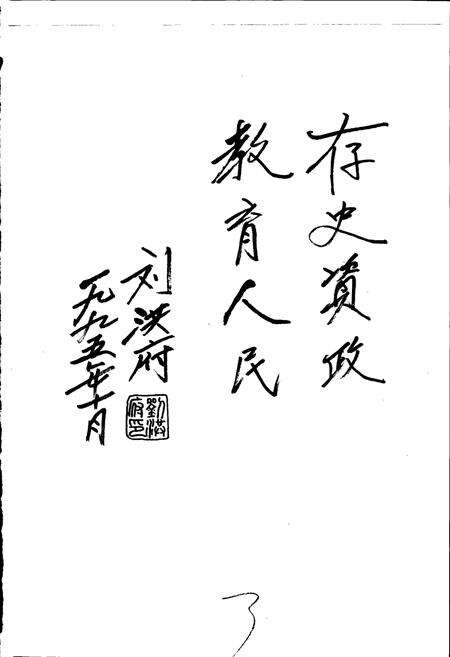 存史资政
教育人民
刘洪府
一九九五年十月
劉洪
府印